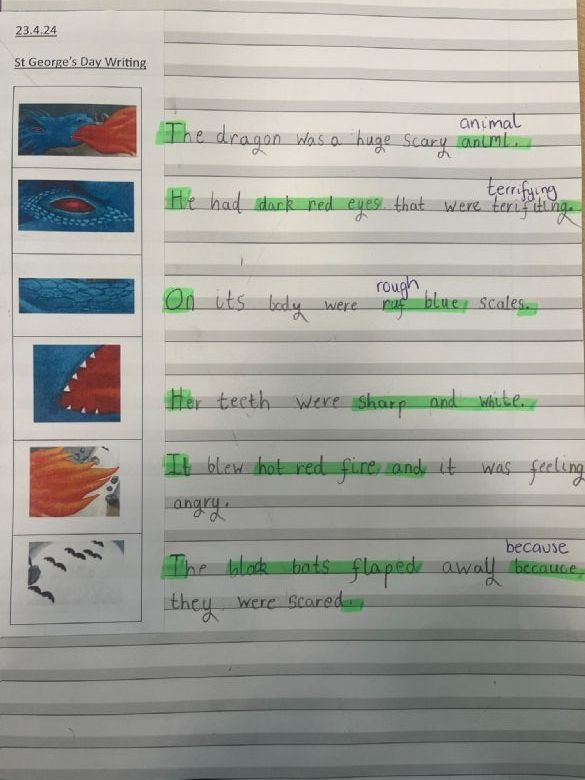 23.4.24
St George's Day Writing
animal
The dragon was a huge scary animl.
terrifying
He had dark red eyes that were terifiting.
rough
On its body were ruf blue scales.
Her teeth were sharp and white.
It blew hot red fire and it was feeling
angry.
because
The black bats flaped away becauce
they were scared.